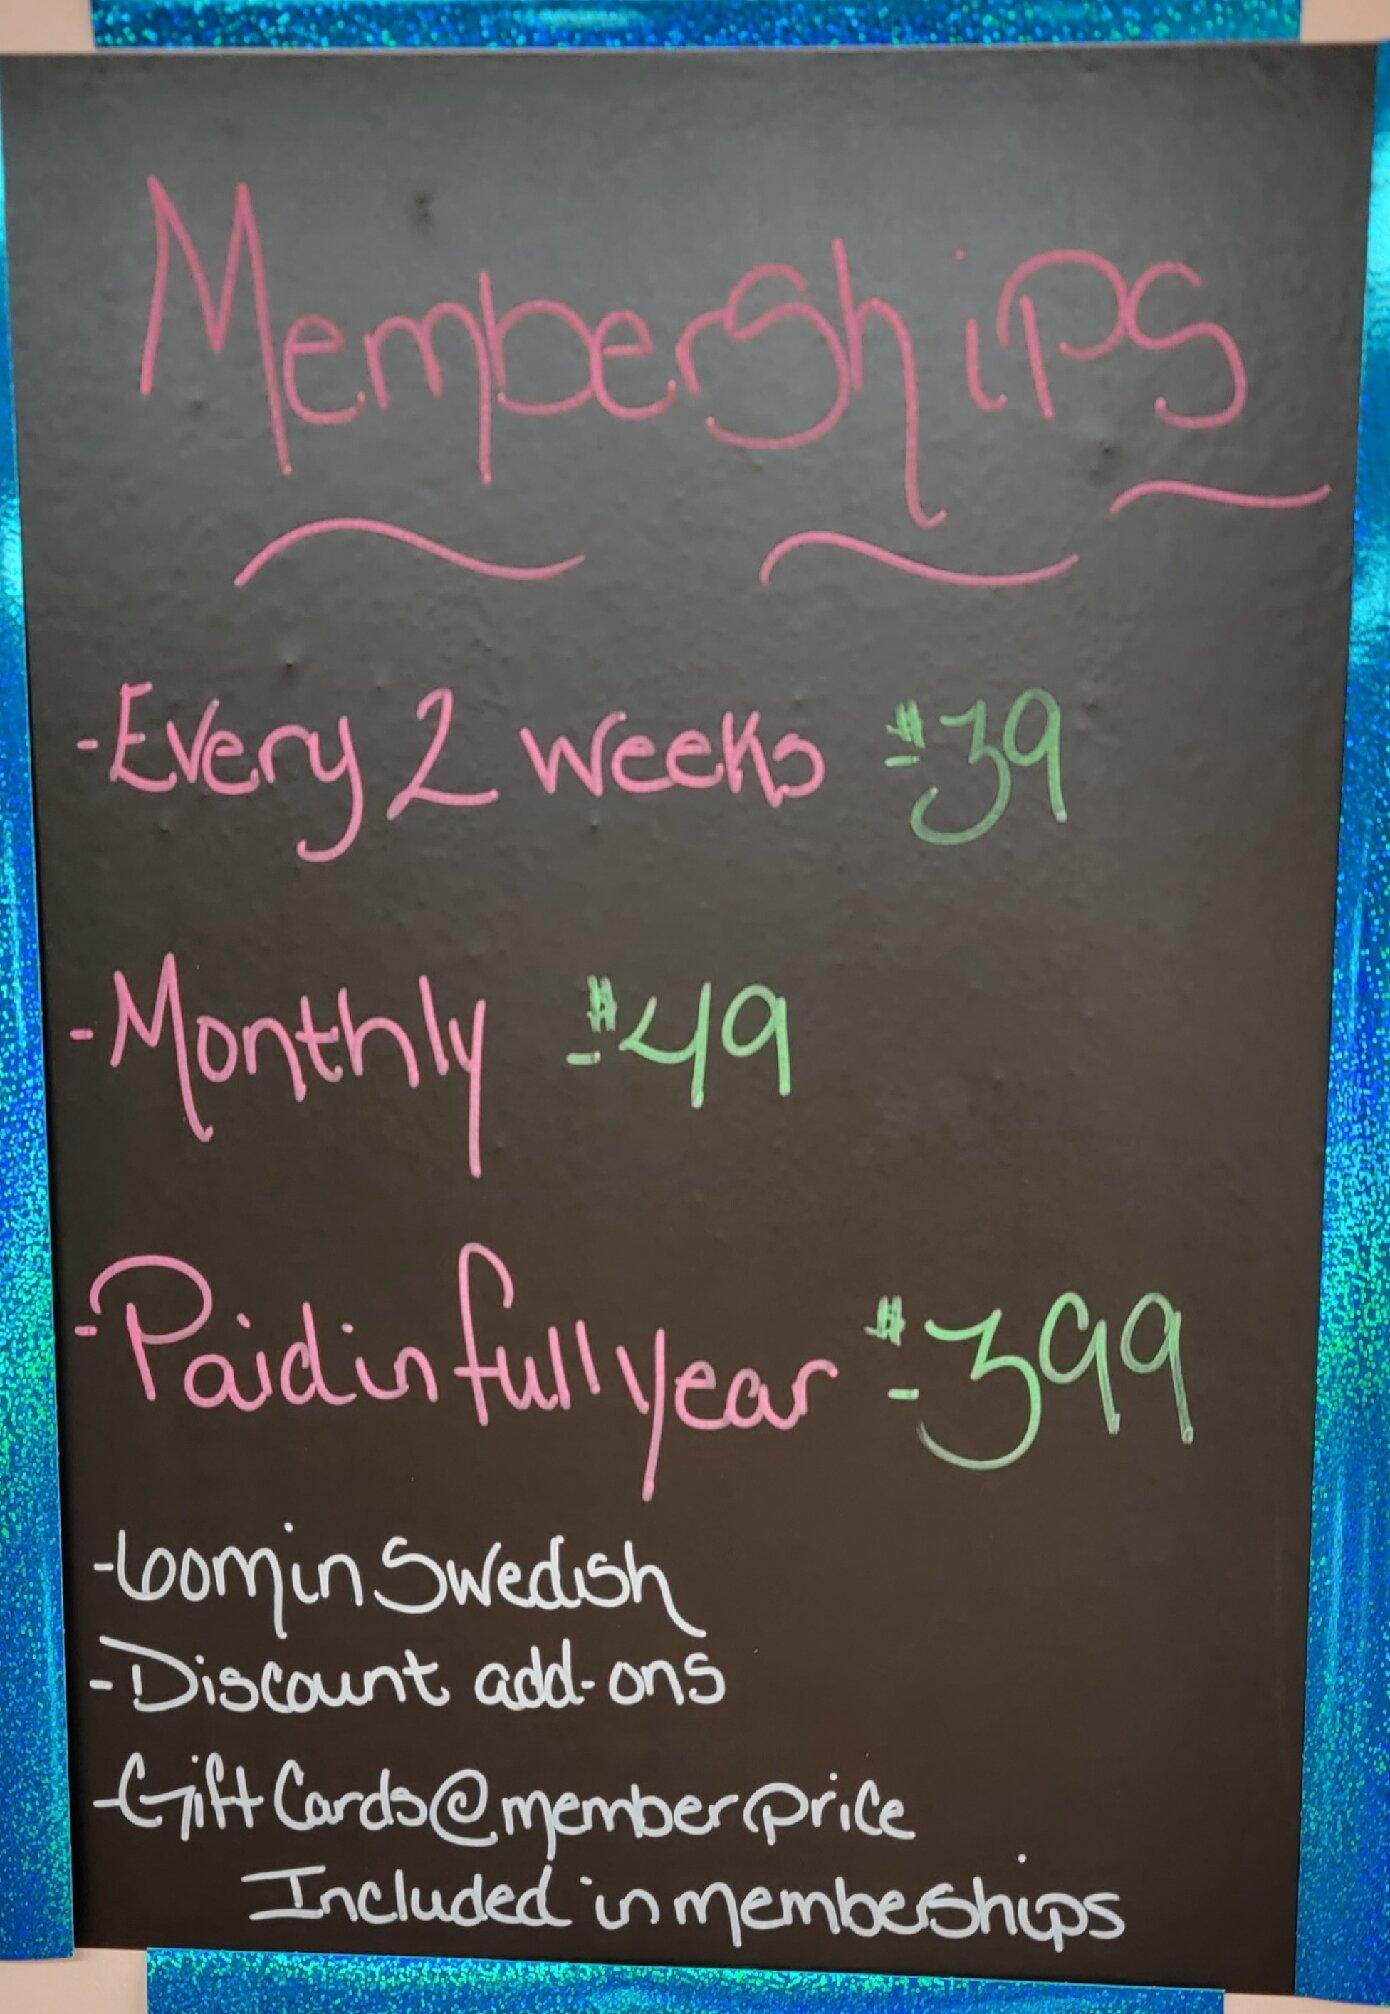 Memberships
-Every 2 weeks -$39
-Monthly -$49
-Paid in full year -$399
-60min Swedish
-Discount add-ons
-Gift Cards @ member price
Included in memberships